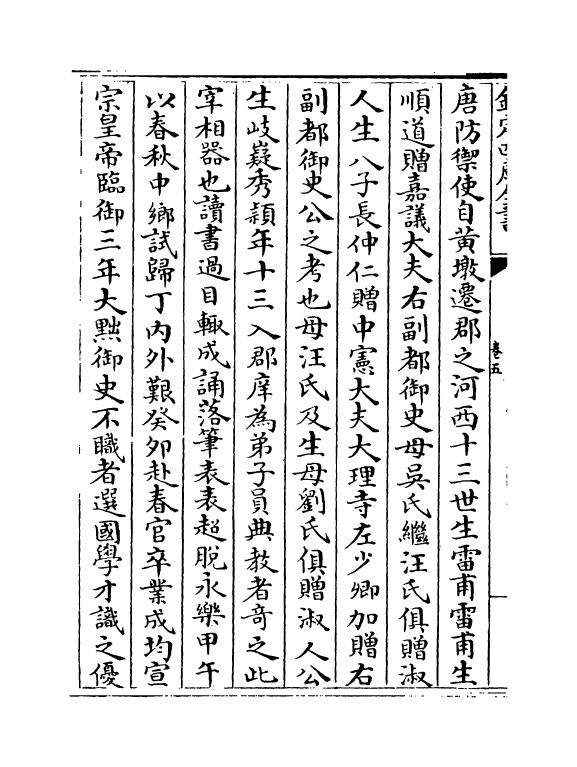 欽定四庫全書
卷五
唐防禦使自黃墩遷郡之河西十三世生雷甫雷甫生
順道贈嘉議大夫右副都御史母吳氏繼汪氏俱贈淑
人生八子長仲仁贈中憲大夫大理寺左少卿加贈右
副都御史公之考也母汪氏及生母劉氏俱贈淑人公
生岐嶷秀穎年十三入郡庠為弟子員典教者竒之此
宰相器也讀書過目輙成誦落筆表表超脫永樂甲午
以春秋中鄉試歸丁內外艱癸卯赴春官卒業成均宣
宗皇帝臨御三年大黜御史不職者選國學才識之優